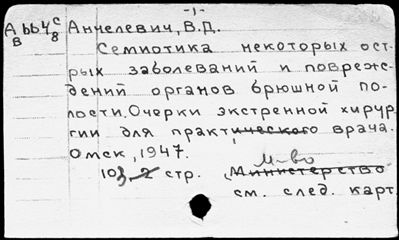 -1-
А bb4 с/8 Анчелевич, В.Д.
В
Семиотика некоторых ост-
рых заболеваний и повреж-
дений органов брюшной по-
лости. Очерки экстренной хирур-
гии для практического врача.
Омск, 1947.
м-во
103,2 стр. Министерство
см. след. карт